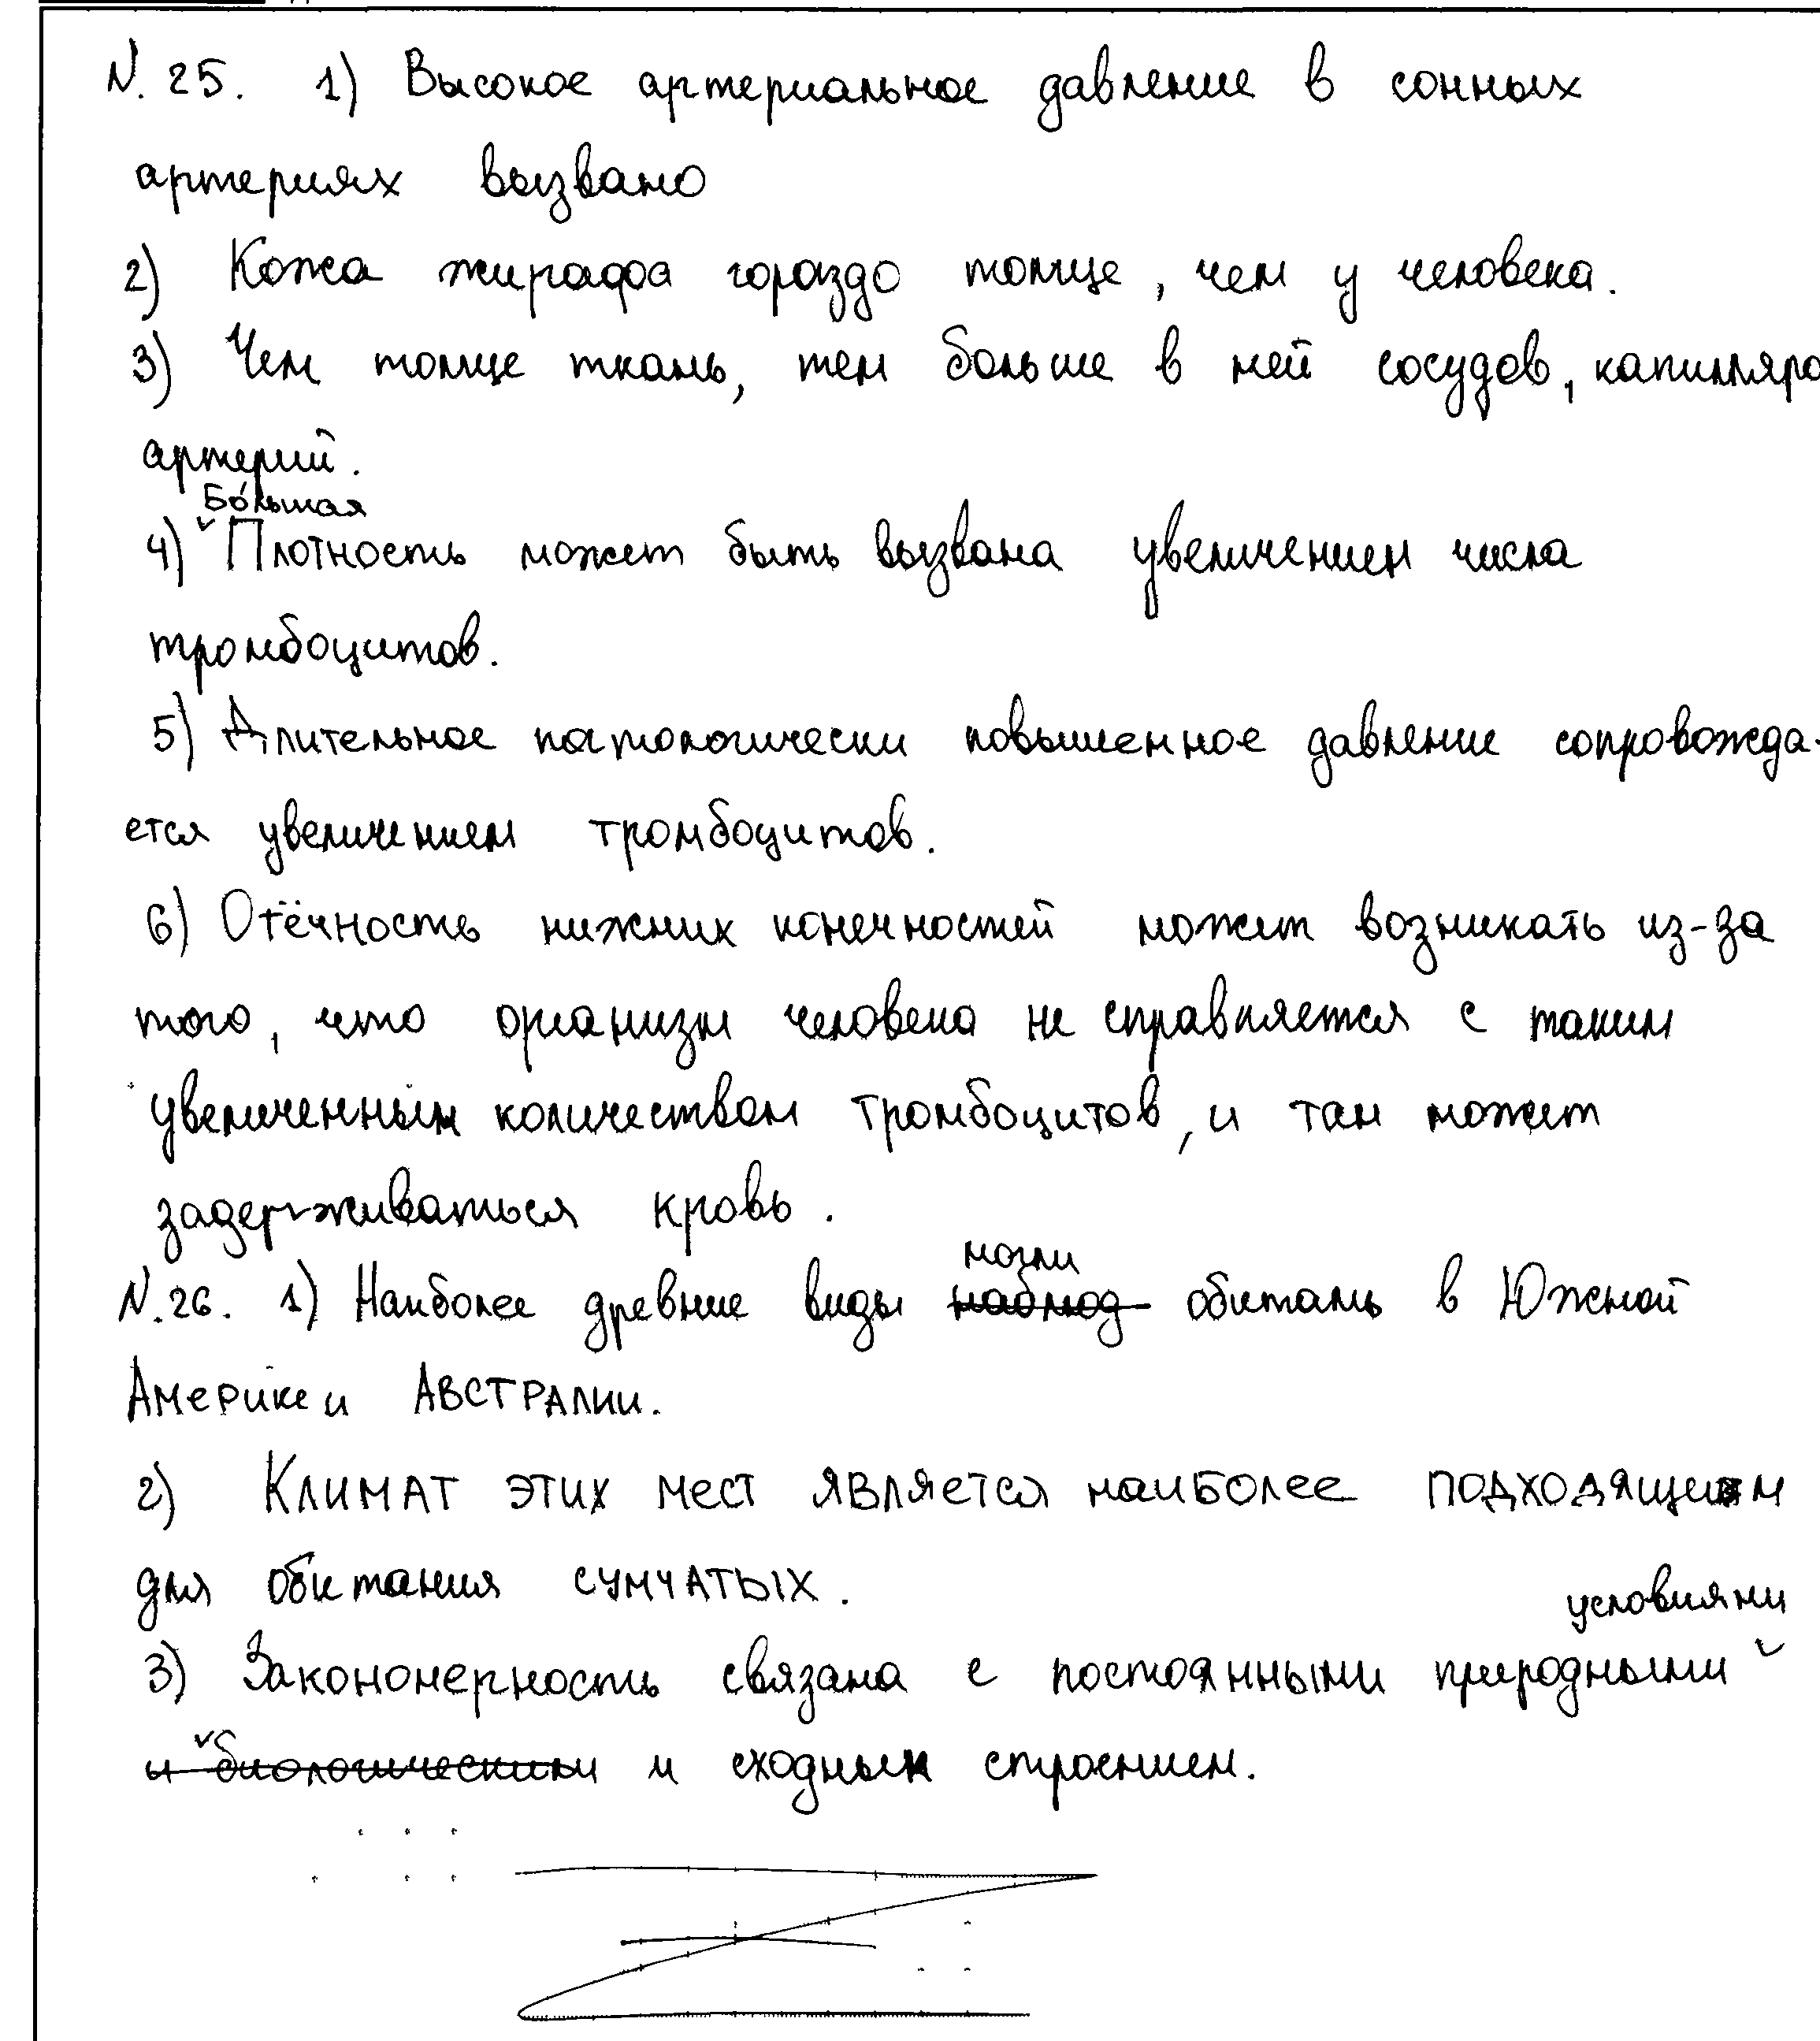 N. 25. 1) Высокое артериальное давление в сонных
артериях вызвано
2) Кожа жирафа гораздо толще, чем у человека.
3) Чем толще ткань, тем больше в ней сосудов, капилляро
артерий.
Бо́льшая
4) Плотность может быть вызвана увеличением числа
тромбоцитов.
5) Длительное патологически повышенное давление сопровожда-
ется увеличением тромбоцитов.
6) Отёчность нижних конечностей может возникать из-за
того, что организм человека не справляется с таким
увеличенным количеством тромбоцитов, и там может
задерживаться кровь.
могли
N. 26. 1) Наиболее древние виды наблюд обитать в Южной
Америке и Австралии.
2) Климат этих мест является наиболее подходящем
для обитания сумчатых.
условиями
3) Закономерность связана с постоянными природными
и биологическими и сходным строением.